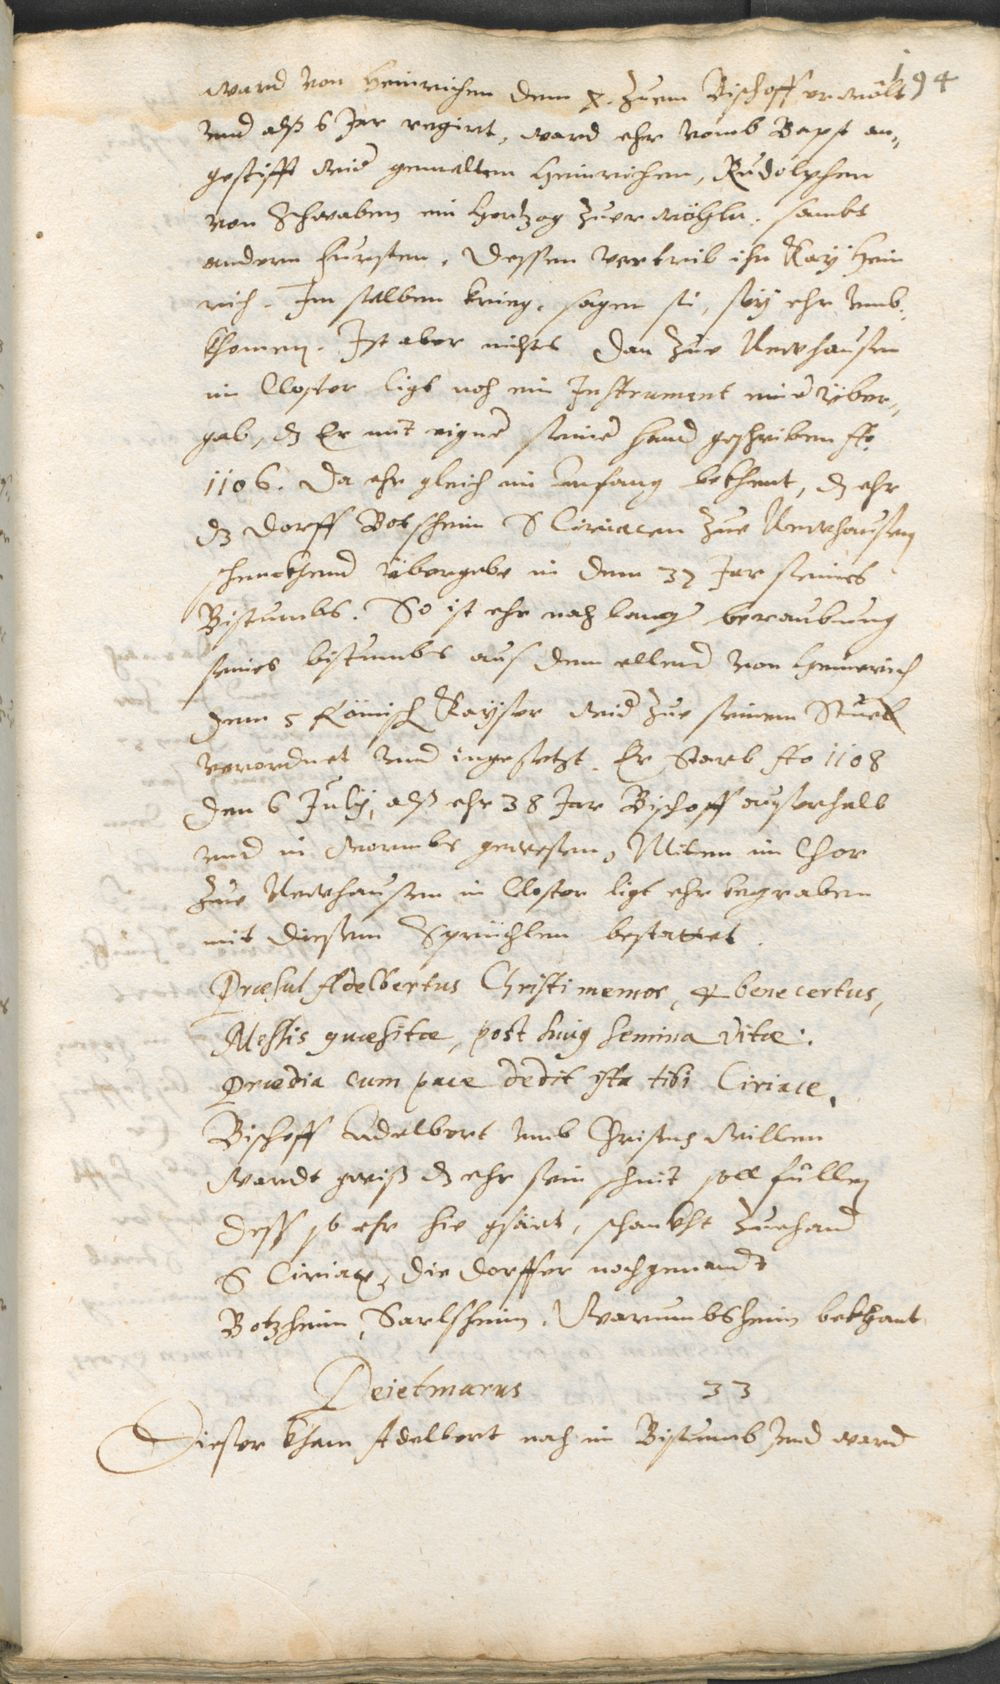 194
ward von Heinrichen dem X. zuem Bischoff erwölt
und alß 6 Jar regiert, ward ehr vomb Bapst an„
gestifft wider gemelten Heinrichen, Rudolphen
von Schwaben ein Hertzog zuerwöhln. sambt
andern fursten. Dessen vertrib ihn Kay Hein
rich. Im selben krieg, sagen sie, sey ehr umb„
khomen. Ist aber nichts dan zue Newhausen
im Closter ligt noch ein Instrument einer über„
gab, dz Er mit eigner seiner hand geschriben Ao
1106. Da ehr gleich im anfang bekhent, dz ehr
dz dorff Botzheim S Ciriacen zue Newhausen
schenckhend übergebe in dem 37 Jar seines
Bistumbs. So ist ehr nach langer beraubung
seines bistumbs aus dem ellend von Heinrich
dem 5 Römisch Kayser wider zue seinem Stuel
verordnet und ingesetzt. Er Starb Ao 1108
den 6 July, alß ehr 38 Jar Bischoff ausserhalb
und in Wormbs gewesen, Mitten im Chor
zue Newhausen in Closter ligt ehr begraben
mit diesem Sprüchlen bestattet.
Præsul Adelbertus Christi memor, & bene certus,
Messis quæsitæ, post huius semina vitæ:
Prædia cum pace dedit ista tibi Ciriace.
Bischoff Adelbert umb Christus willen
wardt gwiß dz ehr sein schnit soll füllen
dess so ehr hie gsäiet, schenkht zuehand
S Ciriac, die dorffer nochgenandt
Botzheim, Sarlsheim, Warumbsheim bekhant
Deietmarus 33
Dieser kham Adelbert nach im Bistumb und ward